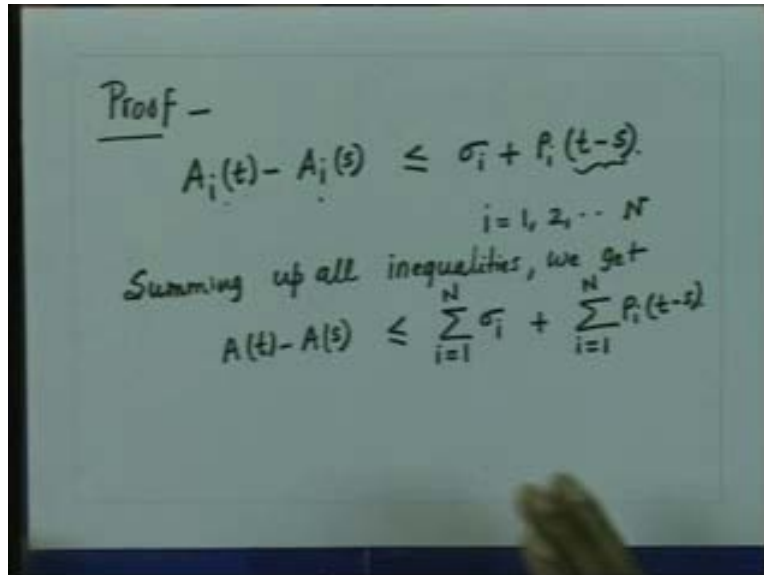 Proof –
A_i(t) - A_i(s) ≤ σ_i + ρ_i (t-s).
i = 1, 2, ·· N
Summing up all inequalities, we get
A(t) - A(s) ≤ ∑_{i=1}^{N} σ_i + ∑_{i=1}^{N} ρ_i (t-s)